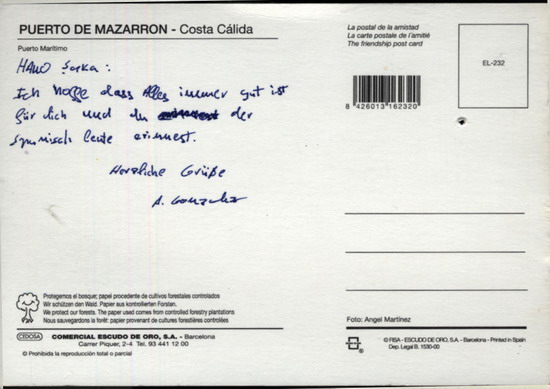 PUERTO DE MAZARRON - Costa Cálida
Puerto Marítimo
HALLO Sarka:
Ich hoffe dass Alles immer gut ist
für dich und du der
spanisch leute erinnest.
Herzliche Grüße
A. Gonzalez
La postal de la amistad
La carte postale de l'amitié
The friendship post card
EL-232
8 426013 162320
Protegemos el bosque; papel procedente de cultivos forestales controlados
Wir schützen den Wald. Papier aus kontrollierten Forsten.
We protect our forests. The paper used comes from controlled forestry plantations
Nous sauvegardons la forêt: papier provenant de cultures forestières contrôlées
CEDOSA
COMERCIAL ESCUDO DE ORO, S.A. - Barcelona
Carrer Piquer, 2-4 Tel. 93 441 12 00
© Prohibida la reproducción total o parcial
Foto: Angel Martínez
© FISA - ESCUDO DE ORO, S.A. - Barcelona - Printed in Spain
Dep. Legal B. 1530-00